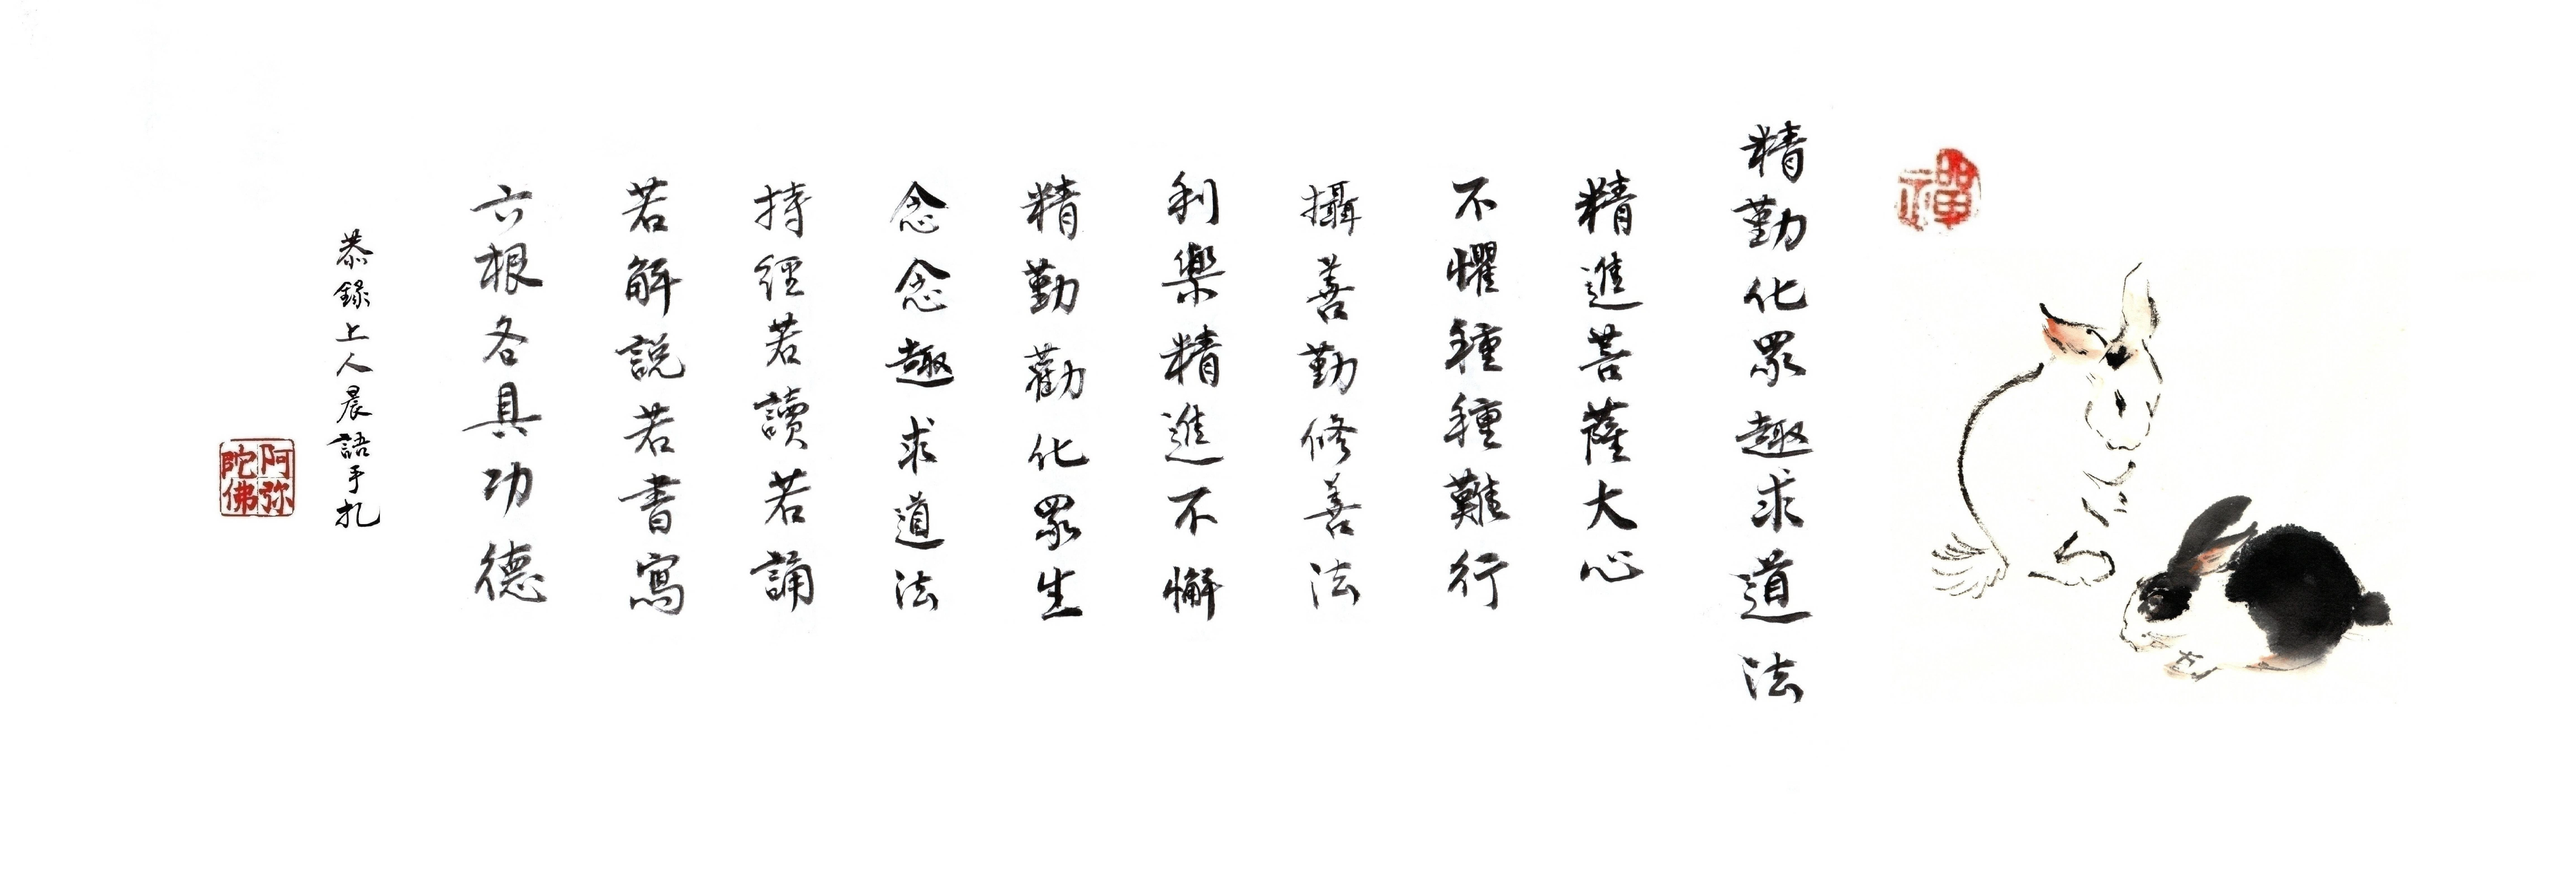 禪
精勤化眾趣求道法
精進菩薩大心
不懼種種難行
攝善勤修善法
利樂精進不懈
精勤勸化眾生
念念趣求道法
持經若讀若誦
若解說若書寫
六根各具功德
恭錄上人晨語手扎
阿弥
陀佛